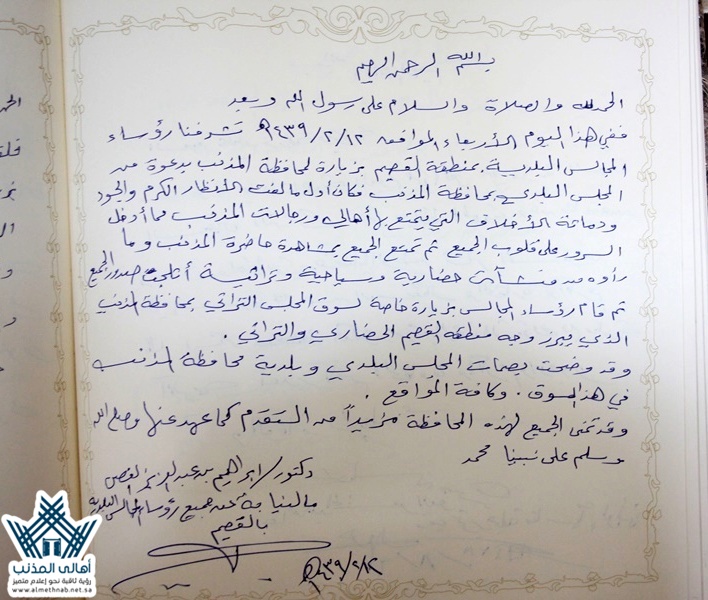 بسم الله الرحمن الرحيم
الحمد لله والصلاة والسلام على رسول الله وبعد
ففي هذا اليوم الأربعاء الموافق ١٤٣٩/٢/١٢هـ تشرفنا رؤساء
المجالس البلدية بمنطقة القصيم بزيارة لمحافظة المذنب بدعوة من
المجلس البلدي بمحافظة المذنب فكان أول ما لفت الأنظار الكرم والجود
ودماثة الأخلاق التي يتمتع بها أهالي ورجالات المذنب مما أدخل
السرور على قلوب الجميع ثم تمتع الجميع بمشاهدة حاضرة المذنب وما
رأوه من منشآت حضارية وسياحية وتراثية أثلجت صدور الجميع
ثم قام رؤساء المجالس بزيارة خاصة لسوق المجلس التراثي بمحافظة المذنب
الذي يبرز وجه منطقة القصيم الحضاري والتراثي .
وقد وضحت بصمات المجلس البلدي وبلدية محافظة المذنب
في هذا السوق . وكافة المواقع .
وقد تمنى الجميع لهذه المحافظة مزيداً من التقدم كما عهد عنها وصلى الله
وسلم على نبينا محمد
دكتور/ إبراهيم بن عبدالعزيز
بالنيابة عن جميع رؤساء المجالس البلدية
بالقصيم
أهالي المذنب
رؤية ثاقبة نحو إعلام متميز
www.almethnab.net.sa